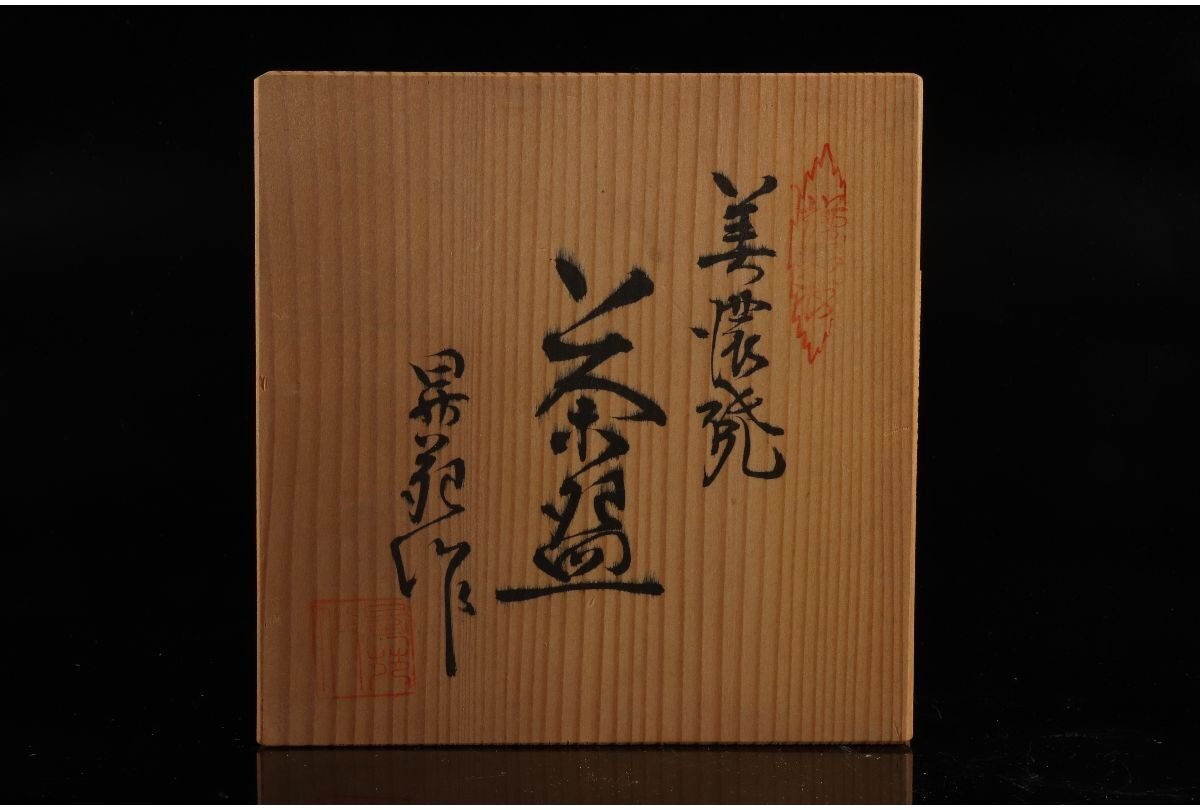 美濃焼
茶盌
昇苑作